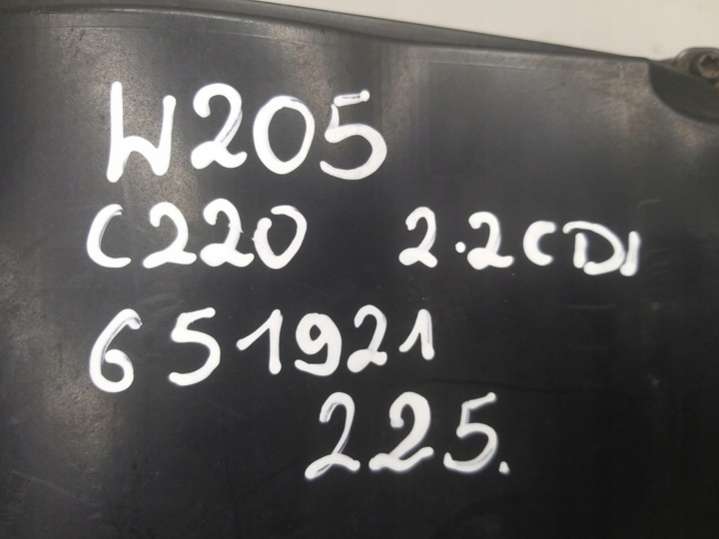 W205
C220 2.2CDI
651921
225.